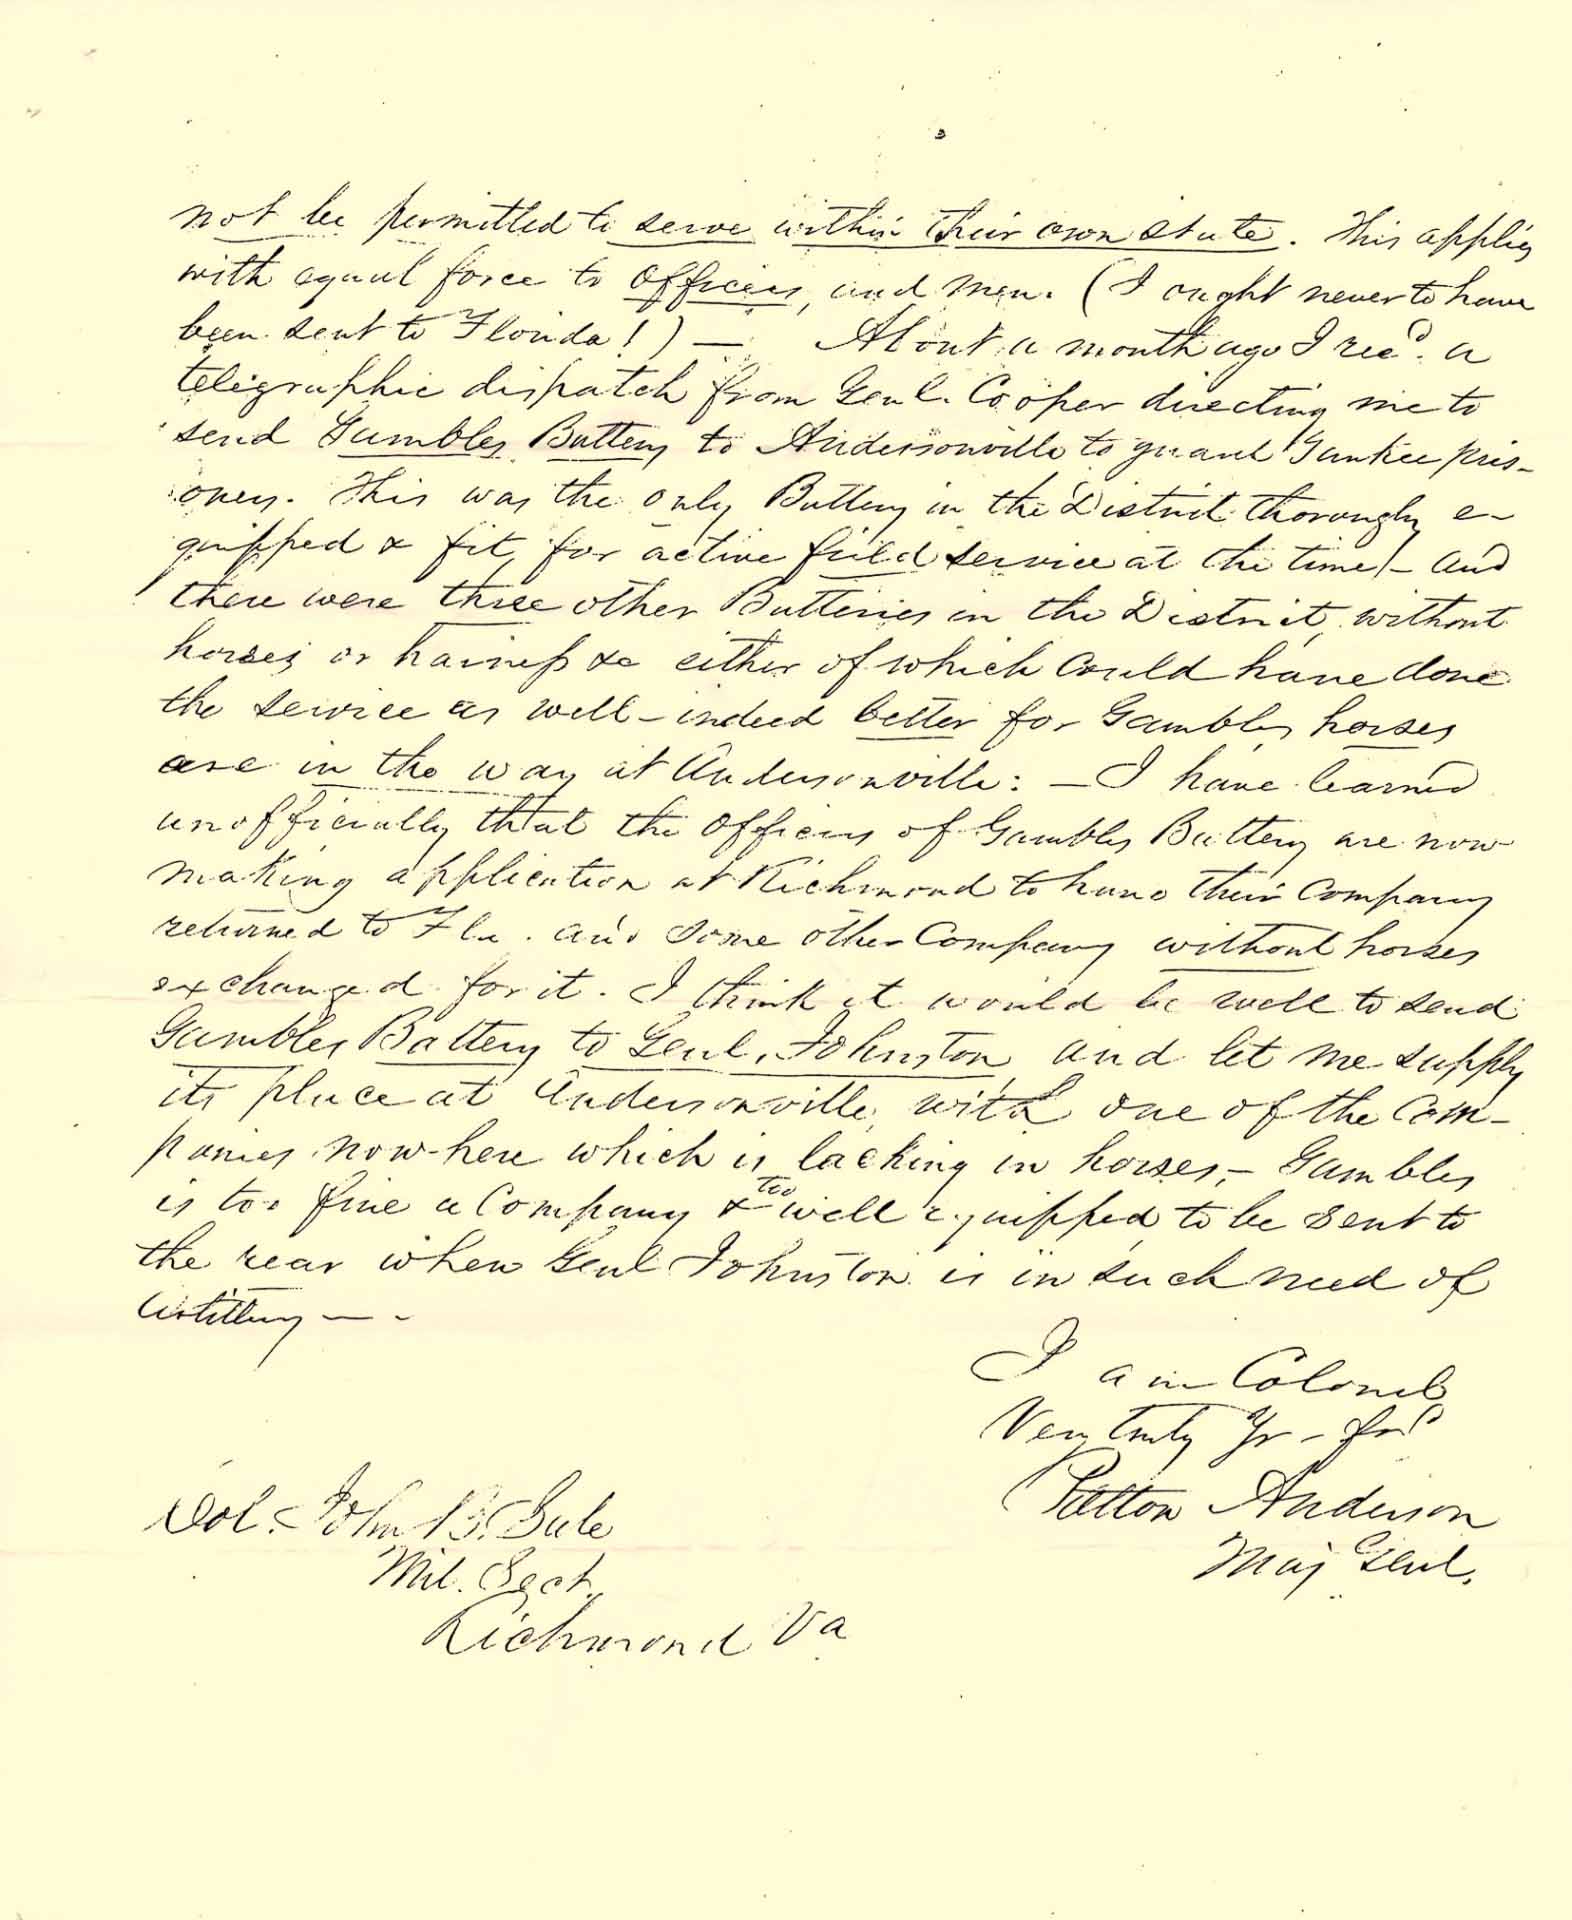 3
not be permitted to serve within their own state. This applies
with equal force to officers, and men. (I ought never to have
been sent to Florida!) — About a month ago I recd. a
telegraphic dispatch from Genl. Cooper directing me to
send Gambles Battery to Andersonville to guard Yankee pris-
oners. This was the only Battery in the District thorougly e-
quipped & fit, for active field service at the time/- and
there were three other Batteries in the District, without
horses or harness &c either of which could have done
the service as well - indeed better for Gambles horses
are in the way at Andersonville: — I have learned
unofficially that the officers of Gambles Battery are now
making application at Richmond to have their Company
returned to Fla. and some other Company without horses
exchanged for it. I think it would be well to send
Gambles Battery to Genl. Johnston, and let me supply
its place at Andersonville, with one of the Com-
panies now here which is lacking in horses,- Gambles
is too fine a Company & too well equipped to be sent to
the rear when Genl Johnston is in such need of
Artillery — -
I am Colonel,
Very truly Yr - frd
Patton Anderson
Maj Genl.
Col. John B. Sale
Mil. Sect.
Richmond Va